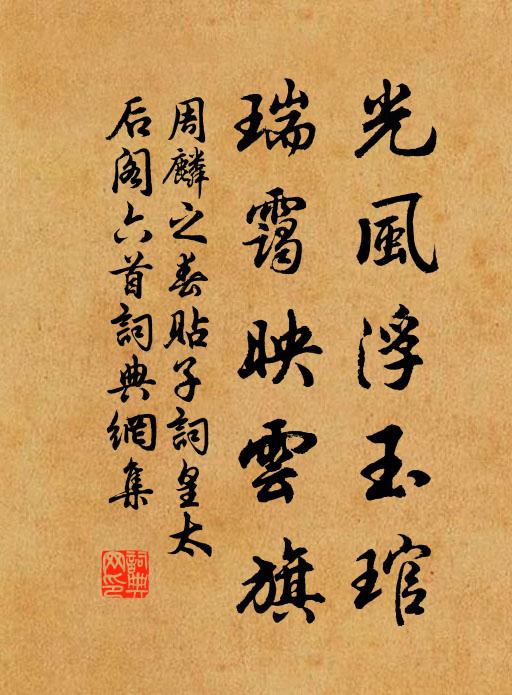 光風浮玉琯
瑞靄映雲旗
周麟之春貼子詞皇太
后閣六首詞典網集
詞典网印